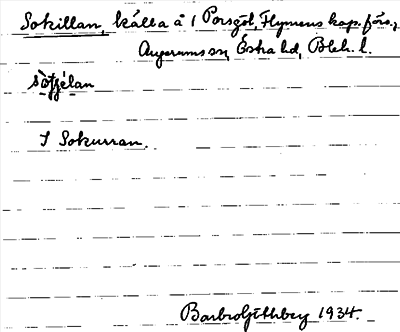 Sokillan, källa å 1 Porsgöl, Flymens kap. förs.,
Augerums sn, Östra hd, Blek. l.
I Sokurran.
Barbro Göthberg 1934.